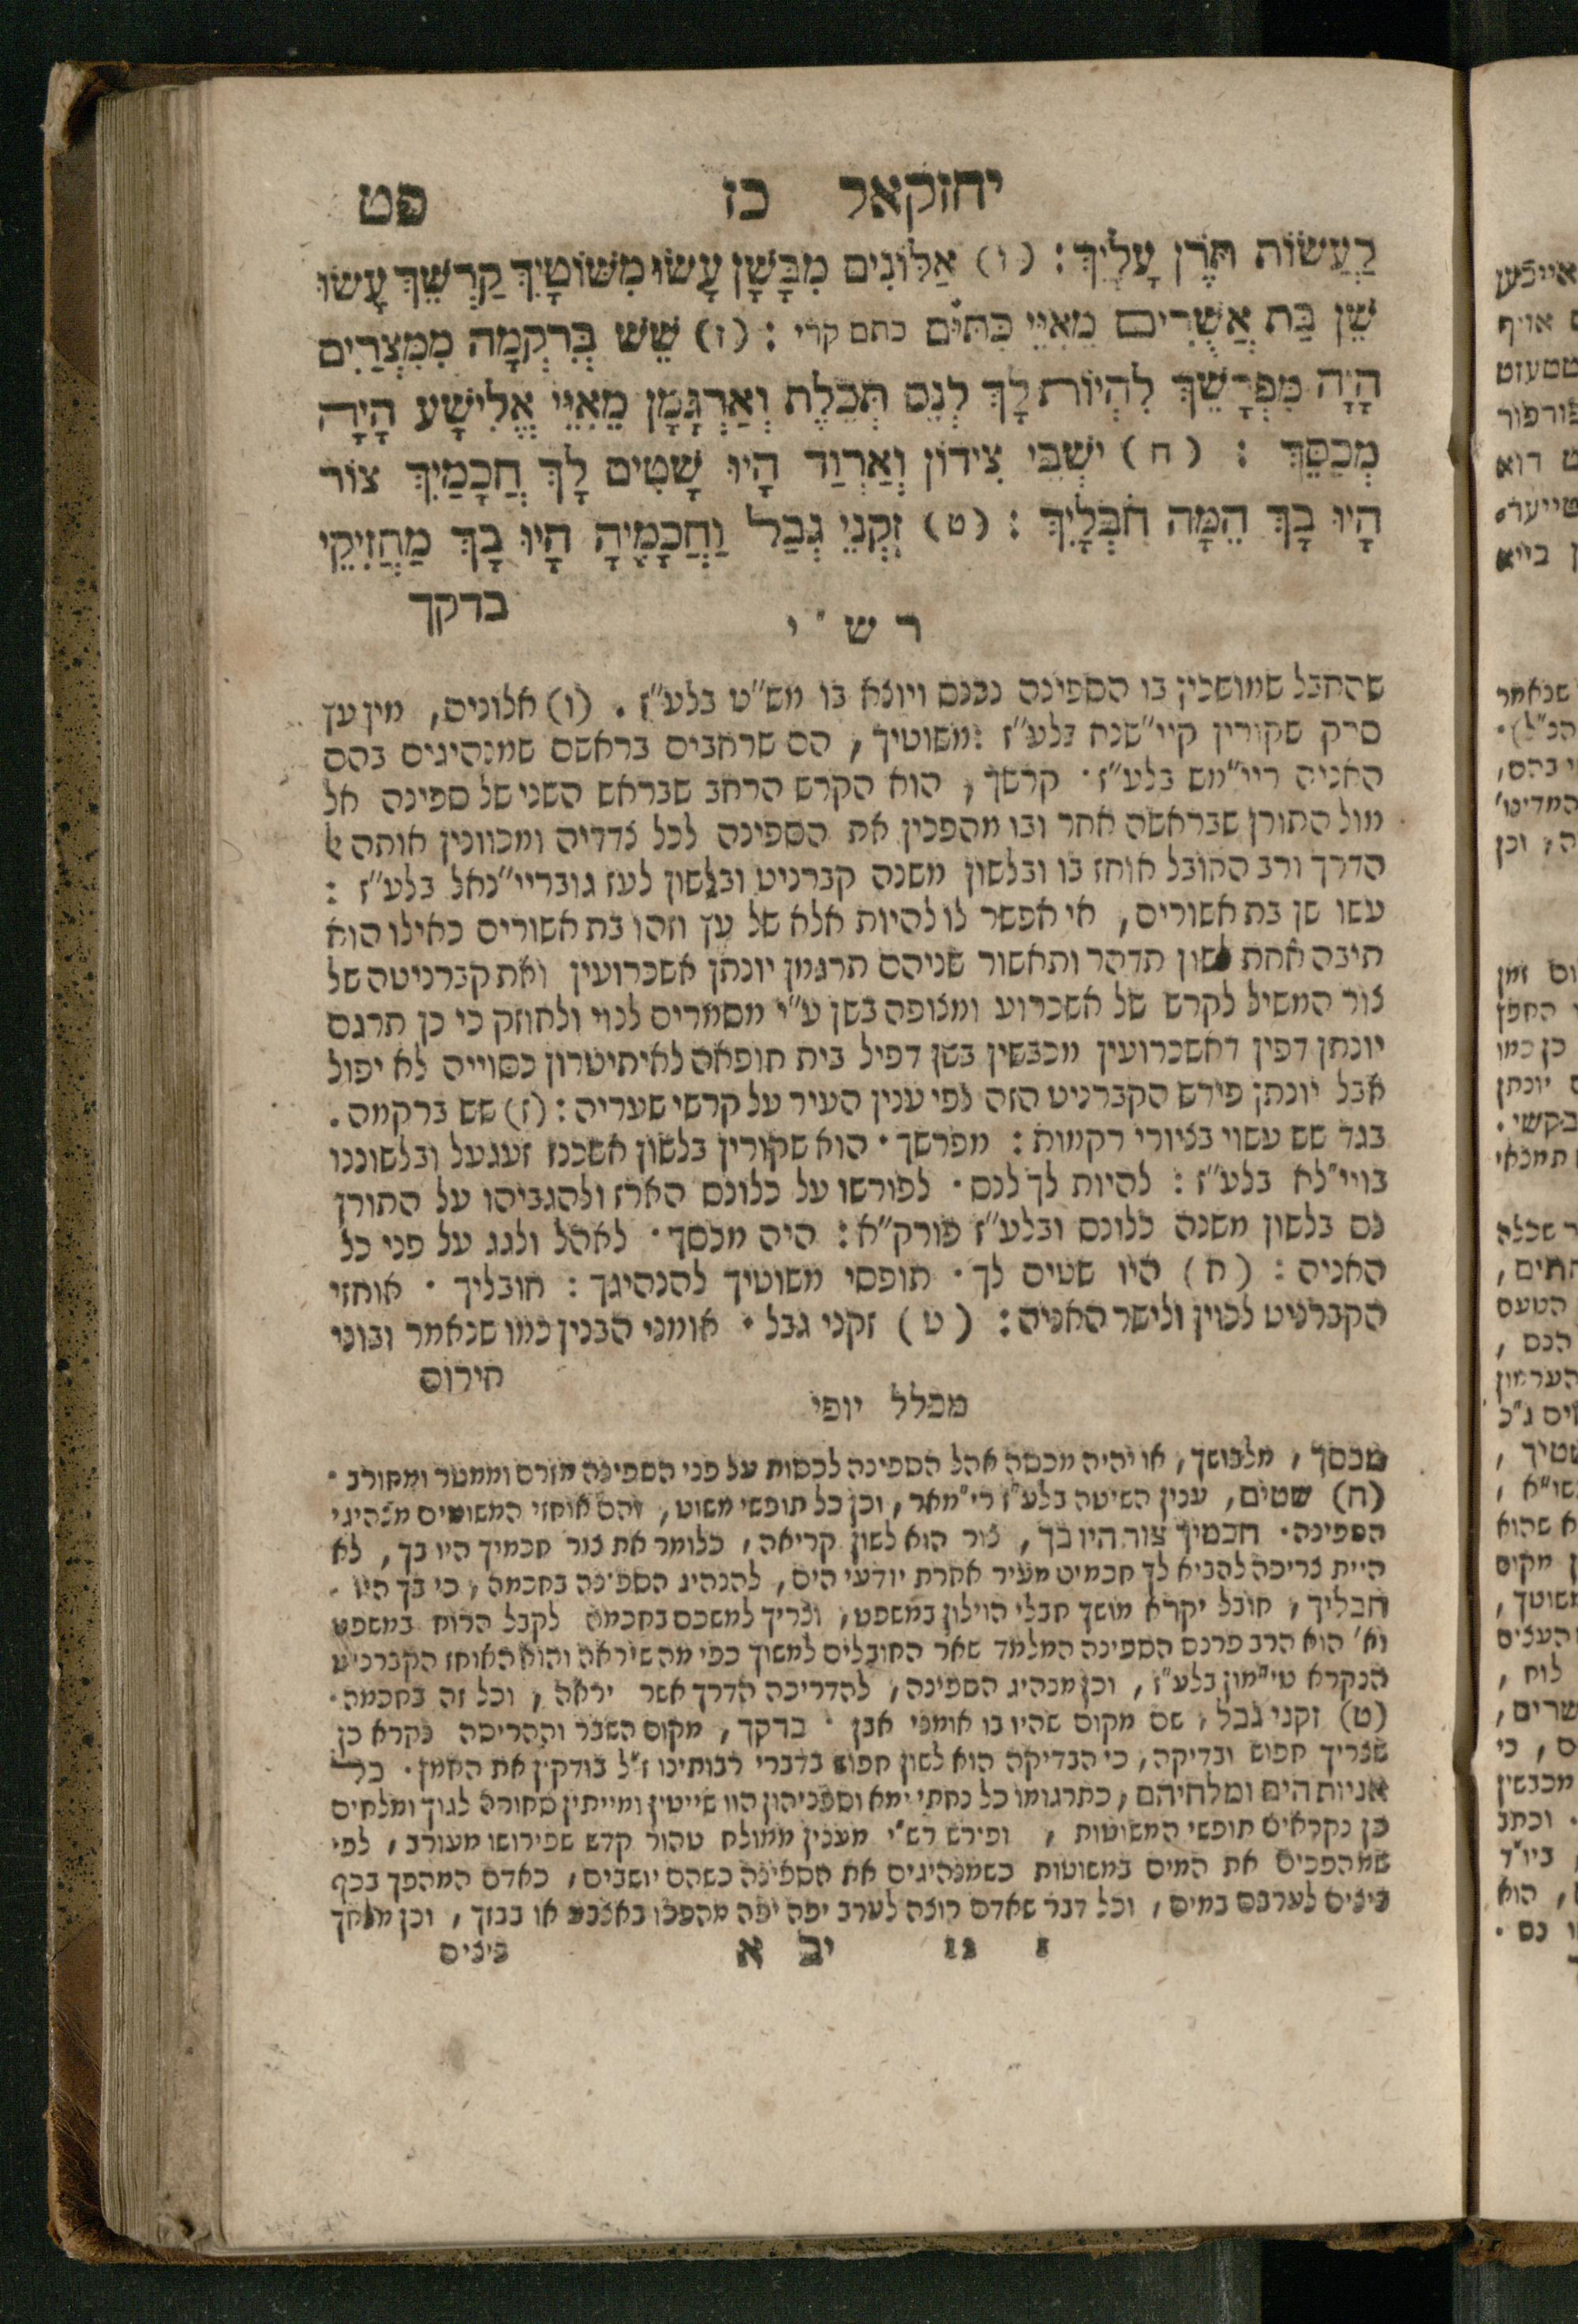 יחזקאל כז פט
לַעֲשׂוֹת תֹּרֶן עָלָיִךְ : (ו) אַלּוֹנִים מִבָּשָׁן עָשׂוּ מִשּׁוֹטָיִךְ קַרְשֵׁךְ עָשׂוּ
שֵׁן בַּת אֲשֻׁרִים מֵאִיֵּי כִּתִּיִּם כתם קרי : (ז) שֵׁשׁ בְּרִקְמָה מִמִּצְרַיִם
הָיָה מִפְרָשֵׂךְ לִהְיוֹת לָךְ לְנֵס תְּכֵלֶת וְאַרְגָּמָן מֵאִיֵּי אֱלִישָׁע הָיָה
מְכַסֵּךְ : (ח) יֹשְׁבֵי צִידוֹן וְאַרְוַד הָיוּ שָׁטִים לָךְ חֲכָמַיִךְ צוֹר
הָיוּ בָךְ הֵמָּה חֹבְלָיִךְ : (ט) זִקְנֵי גְבַל וַחֲכָמֶיהָ הָיוּ בָךְ מַחֲזִיקֵי
בדקך
רש"י
שהחבל שמושכין בו הספינה נכנס ויוצא בו מש"ט בלע"ז . (ו) אלונים, מין עץ
סרק שקורין קיי"שנח בלע"ז : משוטיך, הם שרחבים בראשם שמנהיגים בהם
האניה ריי"מש בלע"ז · קרשך, הוא הקרש הרחב שבראש השני של ספינה אל
מול התורן שבראשה אחר ובו מהפכין את הספינה לכל צדדיה ומכוונין אותה אל
הדרך ורב החובל אוחז בו ובלשון משנה קברניט ובלשון לעז גובריי"נאל בלע"ז :
עשו שן בת אשורים, אי אפשר לו להיות אלא של עץ וזהו בת אשורים כאילו הוא
תיבה אחת לשון תדהר ותאשור שניהם תרגמן יונתן אשכרועין ואת קברניטה של
צור המשיל לקרש של אשכרוע ומצופה בשן ע"י מסמרים לנוי ולחוזק כי כן תרגם
יונתן דפין דאשכרועין מכבשין בשן דפיל בית חופאה לאיתיטרון כסוייה לא יפול
אבל יונתן פירש הקברניט הזה לפי ענין העיר על קרשי שעריה : (ז) שש ברקמה .
בגד שש עשוי בציורי רקמות : מפרשך · הוא שקורין בלשון אשכנז זעגעל ובלשוננו
בויי"לא בלע"ז : להיות לך לנס · לפורשו על כלונס הארז ולהגביהו על התורן
נס בלשון משנה כלונס ובלע"ז פורק"א : היה מכסך · לאהל ולגג על פני כל
האניה : (ח) היו שטים לך · תופסי משוטיך להנהיגך : חובליך · אוחזי
הקברניט לכוין ולישר האניה : (ט) זקני גבל · אומני הבנין כמו שנאמר ובוני
חירום
מכלל יופי
מכסך, מלבושך, או יהיה מכסה אהל הספינה לכסות על פני הספינה מזרם וממטר ומחורב ·
(ח) שטים, ענין השיטה בלע"ז רי"מאר, וכן כל תופשי משוט, והם אוחזי המשוטים מנהיגי
הספינה · חכמיך צור היו בך, צור הוא לשון קריאה, כלומר את צור חכמיך היו בך, לא
היית צריכה להביא לך חכמים מעיר אחרת יודעי הים, להנהיג הספינה בחכמה, כי בך היו
חבליך, חובל יקרא מושך חבלי הוילון במשפט, וצריך למשכם בחכמה לקבל הרוח במשפט
וא' הוא הרב פרנס הספינה המלמד שאר החובלים למשוך כפי מה שיראה והוא האוחז הקברניט
הנקרא טי"מון בלע"ז, וכן מנהיג הספינה, להדריכה הדרך אשר יראה, וכל זה בחכמה ·
(ט) זקני גבל, שם מקום שהיו בו אומני אבן · בדקך, מקום השבר וההריסה נקרא כן
שצריך חפוש ובדיקה, כי הבדיקה הוא לשון חפוש בדברי רבותינו ז"ל בודקין את החמץ · כל
אניות הים ומלחיהם, כתרגומו כל נחתי ימא וספניהון הוו שייטין ומייתין סחורה לגוך ומלחים
כן נקראים תופשי המשוטות, ופירש רש"י מענין ממולח טהור קדש שפירושו מעורב, לפי
שמהפכים את המים במשוטות כשמנהיגים את הספינה כשהם יושבים, כאדם המהפך בכף
ביצים לערבם במים, וכל דבר שאדם רוצה לערב יפה יפה מהפכו באצבע או בבוך, וכן מולחך
יב א ביצים